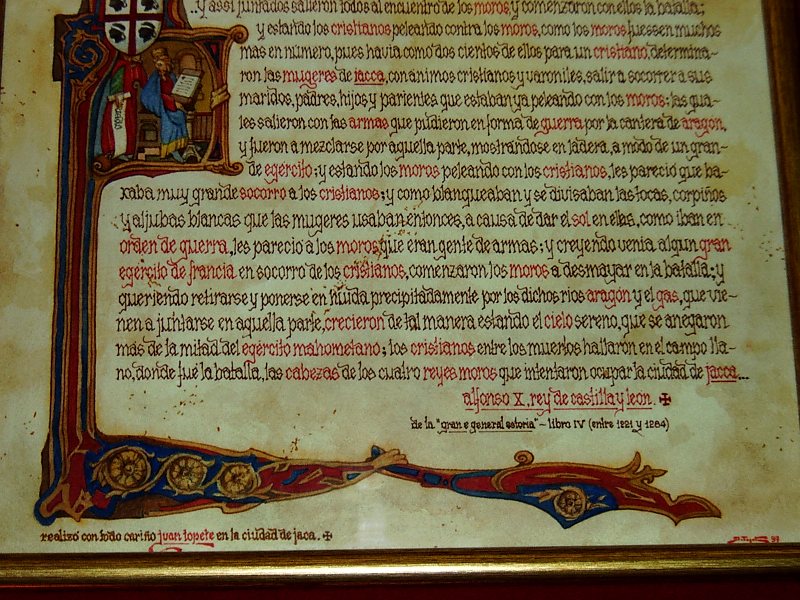 ..y assi juntados salieron todos al encuentro de los moros y comenzaron con ellos la batalla;
y estando los cristianos peleando contra los moros, como los moros fuessen muchos
mas en número, pues havia como dos cientos de ellos para un cristiano, determina-
ron las mugeres de iacca, con animos cristianos y varoniles, salir a socorrer a sus
maridos, padres, hijos y parientes que estaban ya peleando con los moros: las qua-
les salieron con las armas que pudieron en forma de guerra por la cantera de aragon,
y fueron a mezclarse por aquella parte, mostrándose en ladera, a modo de un gran-
de egercito; y estando los moros peleando con los cristianos, les pareció que ba-
xaba muy grande socorro a los cristianos; y como blanqueaban y se divisaban las tocas, corpiños
y aljubas blancas que las mugeres usaban entonces, a causa de dar el sol en ellas, como iban en
orden de guerra, les pareció a los moros, que eran gente de armas; y creyendo venia algun gran
egercito de francia en socorro de los cristianos, comenzaron los moros a desmayar en la batalla; y
queriendo retirarse y ponerse en huida precipitadamente por los dichos rios aragón y el gas, que vie-
nen a juntarse en aquella parte, crecieron de tal manera estando el cielo sereno, que se anegaron
más de la mitad del egército mahometano; los cristianos entre los muertos hallaron en el campo lla-
no, donde fue la batalla, las cabezas de los cuatro reyes moros que intentaron ocupar la ciudad de jacca...
alfonso X, rey de castilla y leon. ✠
de la "gran e general estoria" ~ libro IV (entre 1221 y 1284)
realizó con todo cariño juan lopete en la ciudad de jaca. ✠